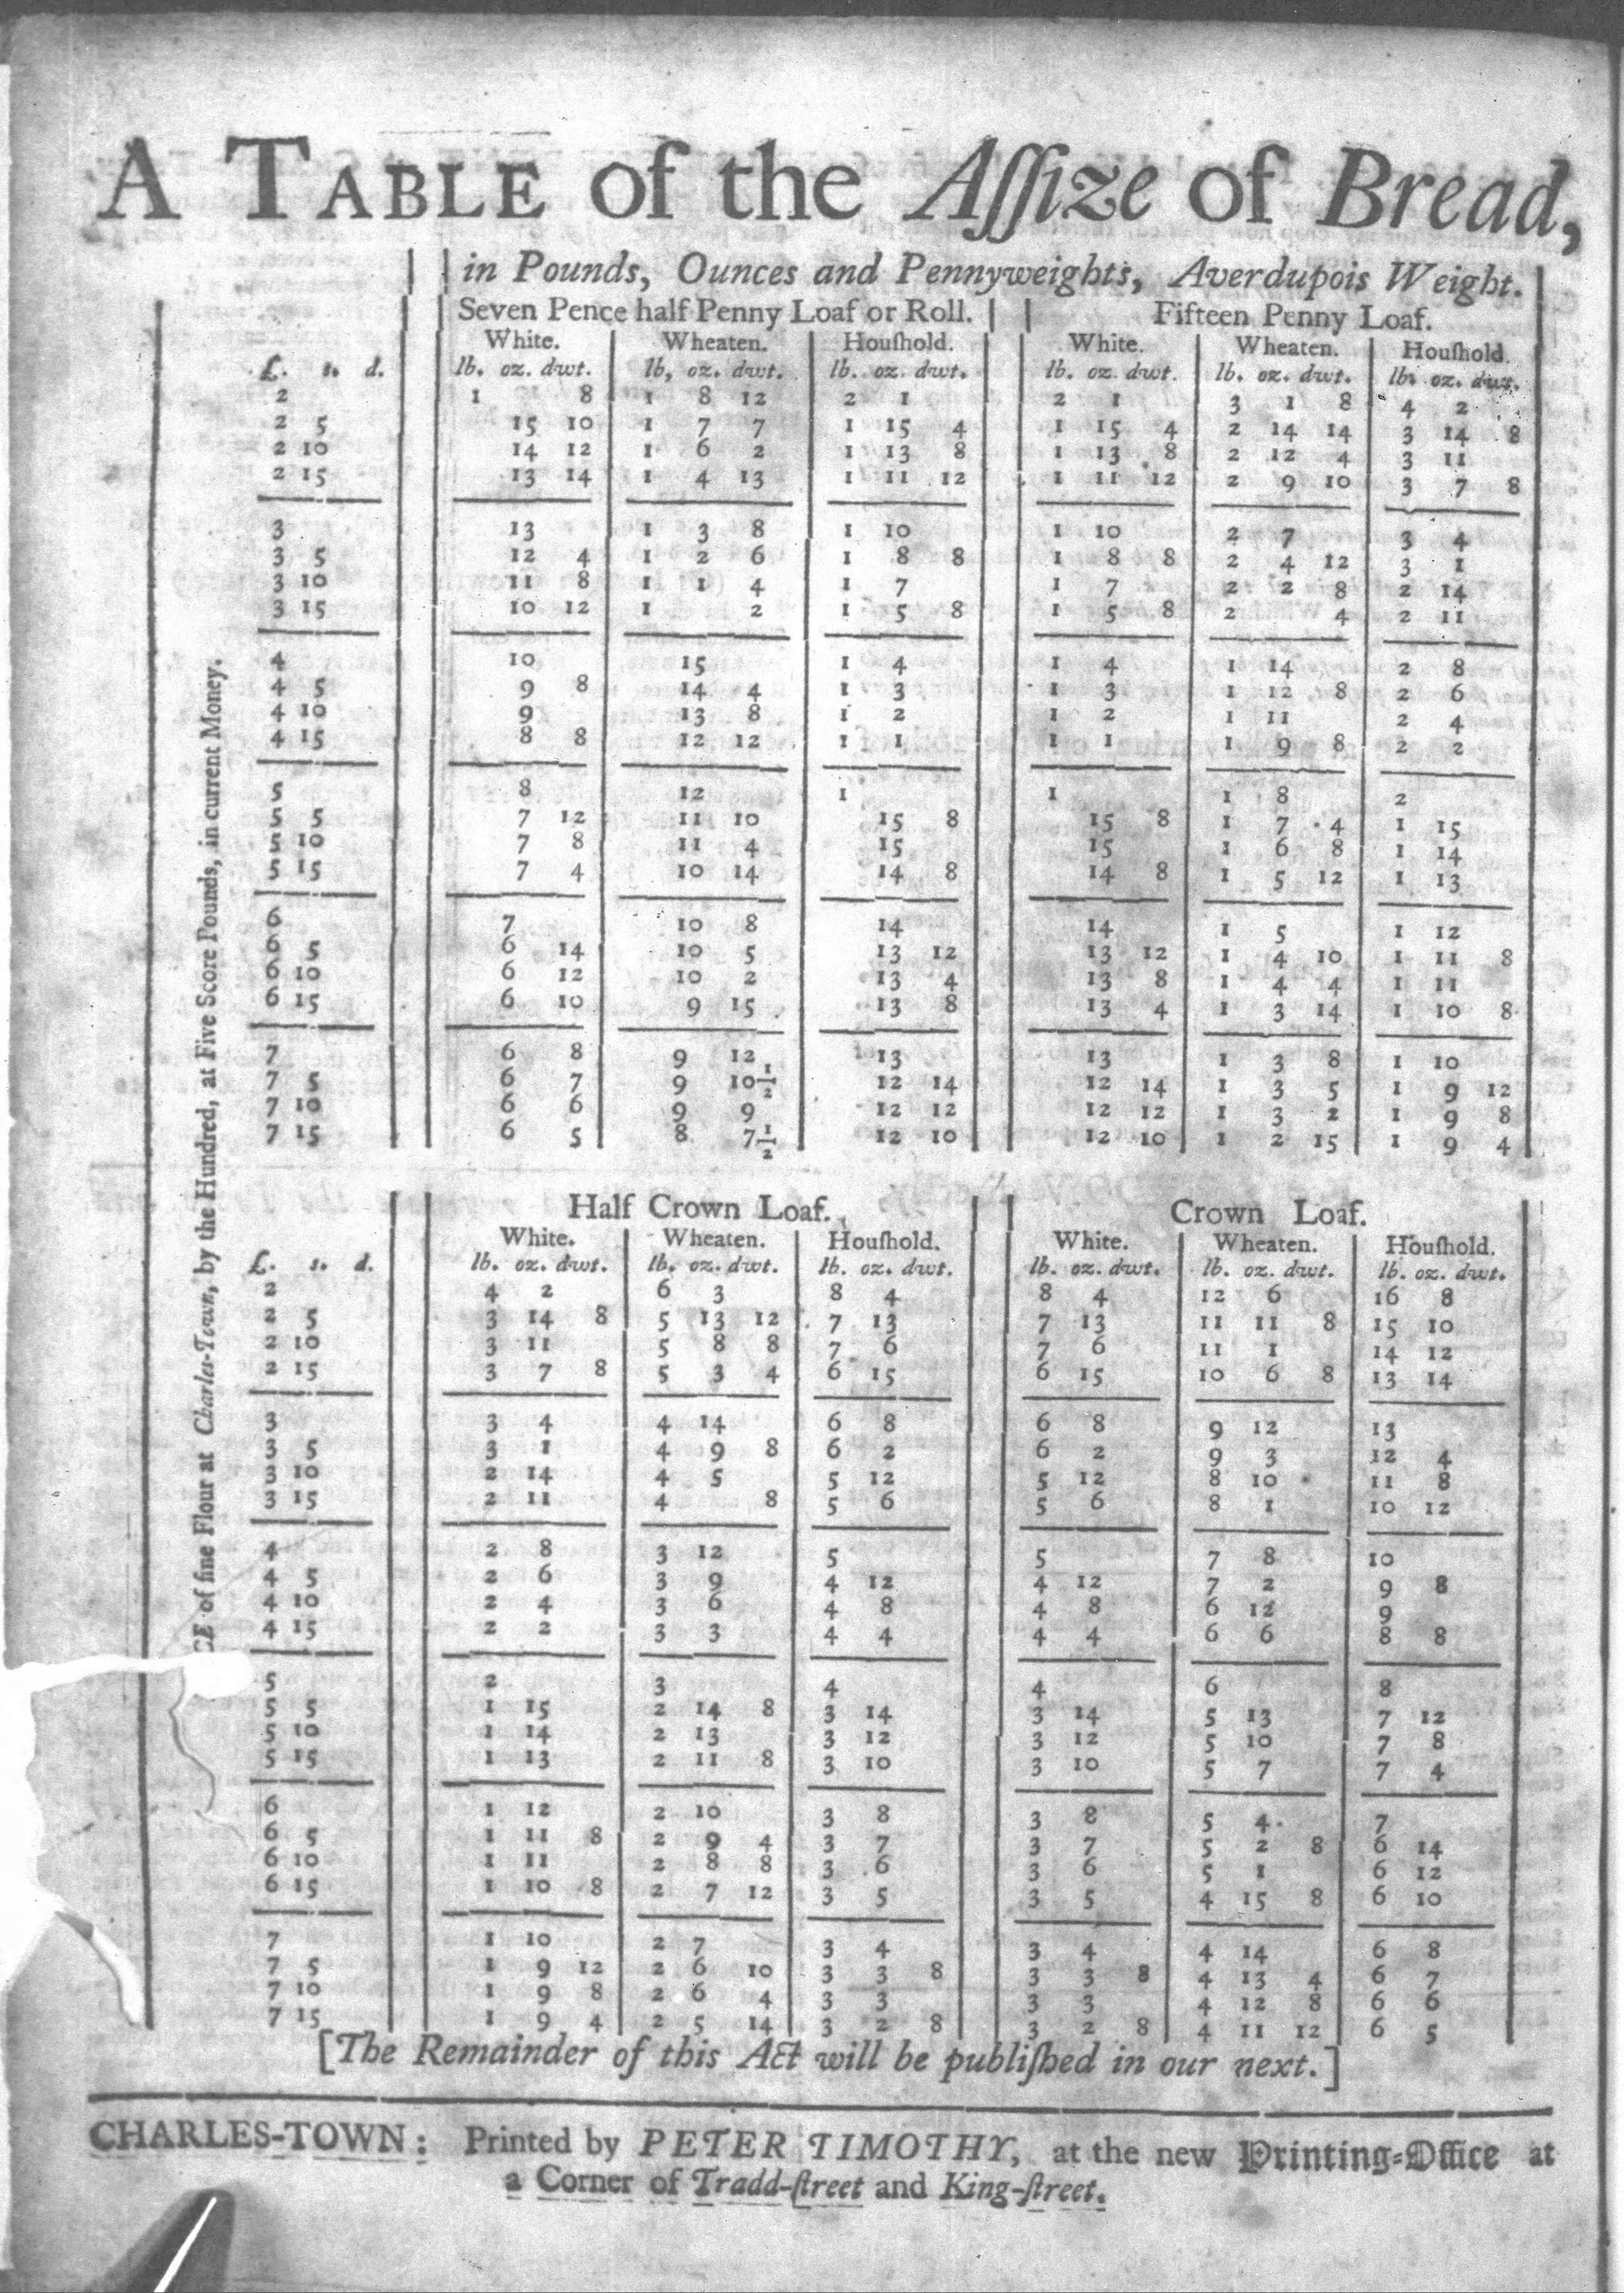 A TABLE of the Aſſize of Bread,
in Pounds, Ounces and Pennyweights, Averdupois Weight.
Seven Pence half Penny Loaf or Roll. Fifteen Penny Loaf.
White. Wheaten. Houſhold. White. Wheaten. Houſhold.
£. s. d. lb. oz. dwt. lb, oz. dwt. lb. oz. dwt. lb. oz. dwt. lb. oz. dwt. lb. oz. dwt.
2 1 8 1 8 12 2 1 2 1 3 1 8 4 2
2 5 15 10 1 7 7 1 15 4 1 15 4 2 14 14 3 14 8
2 10 14 12 1 6 2 1 13 8 1 13 8 2 12 4 3 11
2 15 13 14 1 4 13 1 11 12 1 11 12 2 9 10 3 7 8
3 13 1 3 8 1 10 1 10 2 7 3 4
3 5 12 4 1 2 6 1 8 8 1 8 8 2 4 12 3 1
3 10 11 8 1 1 4 1 7 1 7 2 2 8 2 14
3 15 10 12 1 2 1 5 8 1 5 8 2 4 2 11
4 10 15 1 4 1 4 1 14 2 8
4 5 9 8 14 4 1 3 1 3 1 12 8 2 6
4 10 9 13 8 1 2 1 2 1 11 2 4
4 15 8 8 12 12 1 1 1 1 1 9 8 2 2
5 8 12 1 1 1 8 2
5 5 7 12 11 10 15 8 15 8 1 7 4 1 15
5 10 7 8 11 4 15 15 1 6 8 1 14
5 15 7 4 10 14 14 8 14 8 1 5 12 1 13
6 7 10 8 14 14 1 5 1 12
6 5 6 14 10 5 13 12 13 12 1 4 10 1 11 8
6 10 6 12 10 2 13 4 13 8 1 4 4 1 11
6 15 6 10 9 15 13 8 13 4 1 3 14 1 10 8
7 6 8 9 12 13 13 1 3 8 1 10
7 5 6 7 9 10½ 12 14 12 14 1 3 5 1 9 12
7 10 6 6 9 9 12 12 12 12 1 3 2 1 9 8
7 15 6 5 8 7½ 12 10 12 10 1 2 15 1 9 4
CE of fine Flour at Charles-Town, by the Hundred, at Five Score Pounds, in current Money.
Half Crown Loaf. Crown Loaf.
White. Wheaten. Houſhold. White. Wheaten. Houſhold.
£. s. d. lb. oz. dwt. lb, oz. dwt. lb. oz. dwt. lb. oz. dwt. lb. oz. dwt. lb. oz. dwt.
2 4 2 6 3 8 4 8 4 12 6 16 8
2 5 3 14 8 5 13 12 7 13 7 13 11 11 8 15 10
2 10 3 11 5 8 8 7 6 7 6 11 1 14 12
2 15 3 7 8 5 3 4 6 15 6 15 10 6 8 13 14
3 3 4 4 14 6 8 6 8 9 12 13
3 5 3 1 4 9 8 6 2 6 2 9 3 12 4
3 10 2 14 4 5 5 12 5 12 8 10 11 8
3 15 2 11 4 8 5 6 5 6 8 1 10 12
4 2 8 3 12 5 5 7 8 10
4 5 2 6 3 9 4 12 4 12 7 2 9 8
4 10 2 4 3 6 4 8 4 8 6 12 9
4 15 2 2 3 3 4 4 4 4 6 6 8 8
5 2 3 4 4 6 8
5 5 1 15 2 14 8 3 14 3 14 5 13 7 12
5 10 1 14 2 13 3 12 3 12 5 10 7 8
5 15 1 13 2 11 8 3 10 3 10 5 7 7 4
6 1 12 2 10 3 8 3 8 5 4 7
6 5 1 11 8 2 9 4 3 7 3 7 5 2 8 6 14
6 10 1 11 2 8 8 3 6 3 6 5 1 6 12
6 15 1 10 8 2 7 12 3 5 3 5 4 15 8 6 10
7 1 10 2 7 3 4 3 4 4 14 6 8
7 5 1 9 12 2 6 10 3 3 8 3 3 8 4 13 4 6 7
7 10 1 9 8 2 6 4 3 3 3 3 4 12 8 6 6
7 15 1 9 4 2 5 14 3 2 8 3 2 8 4 11 12 6 5
[The Remainder of this Act will be publiſhed in our next.]
CHARLES-TOWN: Printed by PETER TIMOTHY, at the new Printing-Office at
a Corner of Tradd-ſtreet and King-ſtreet.